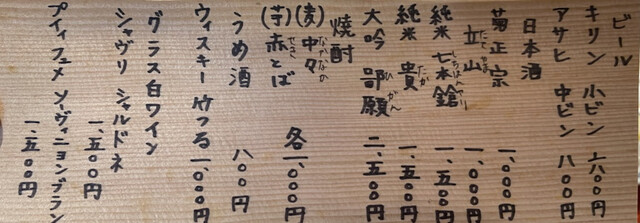 ビール
キリン 小ビン 六〇〇円
アサヒ 中ビン 八〇〇円
日本酒
菊正宗 一、〇〇〇円
立山 たてやま 一、〇〇〇円
純米 七本鎗 しちほんやり 一、五〇〇円
純米 貴 たか 一、五〇〇円
大吟 ひがん 二、五〇〇円
焼酎
(麦) 中々 なかなか
(芋) 赤とば 各一、〇〇〇円
うめ酒 八〇〇円
ウィスキー 竹つる 一、〇〇〇円
グラス白ワイン
シャヴリ シャルドネ 一、五〇〇円
プイィフュメ ソーヴィニヨンブラン 一、五〇〇円